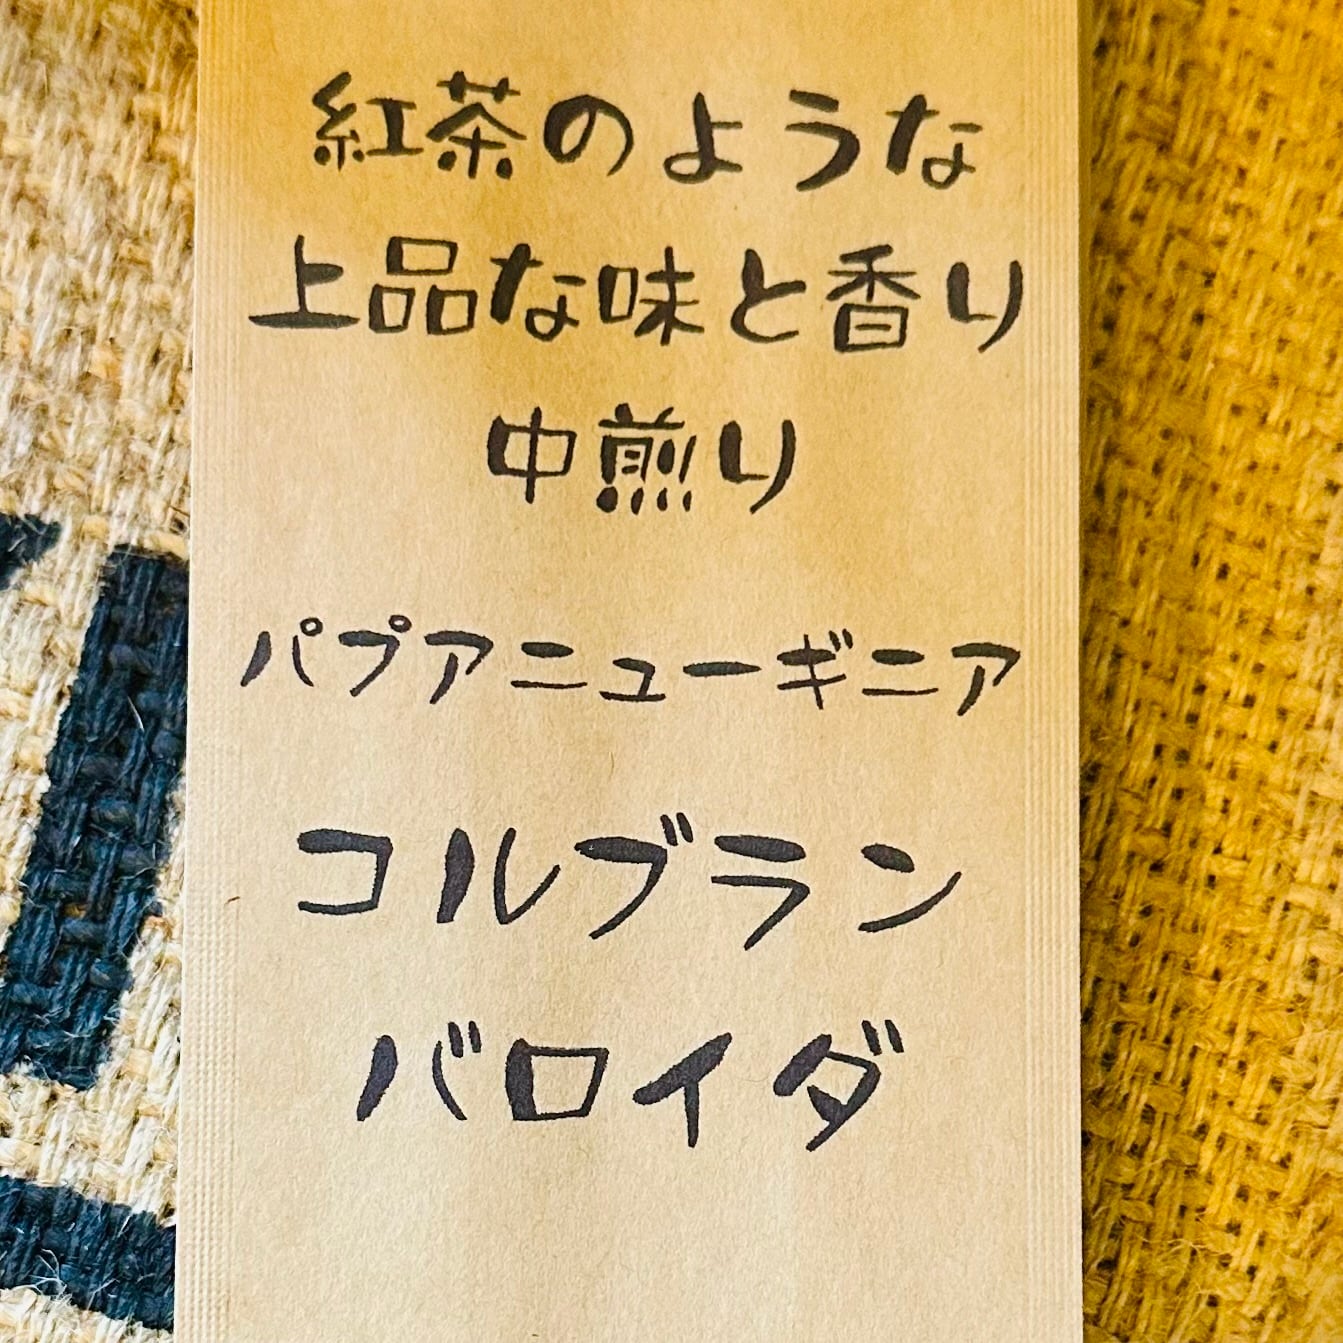 紅茶のような
上品な味と香り
中煎り
パプアニューギニア
コルブラン
バロイダ